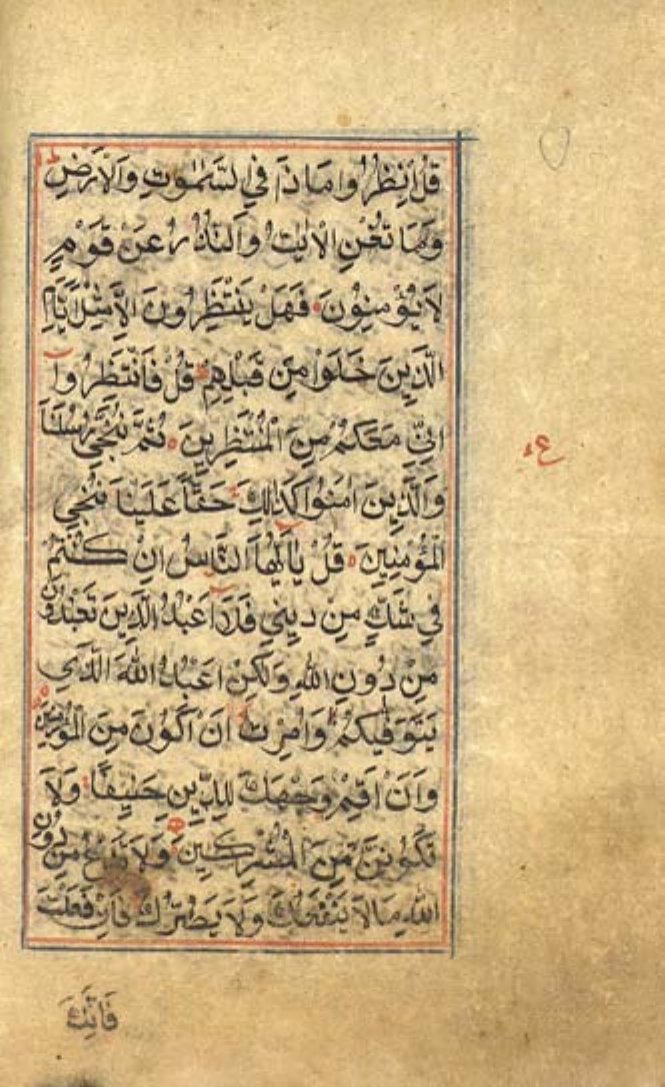 قُلِ انْظُرُوا مَاذَا فِي السَّمٰوٰتِ وَالْاَرْضِ
وَمَا تُغْنِ الْاٰيٰتُ وَالنُّذُرُ عَنْ قَوْمٍ
لَا يُؤْمِنُونَ فَهَلْ يَنْتَظِرُونَ اِلَّا مِثْلَ اَيَّامِ
الَّذِينَ خَلَوْا مِنْ قَبْلِهِمْ قُلْ فَانْتَظِرُوا
اِنِّي مَعَكُمْ مِنَ الْمُنْتَظِرِينَ ثُمَّ نُنَجِّي رُسُلَنَا
وَالَّذِينَ اٰمَنُوا كَذٰلِكَ حَقًّا عَلَيْنَا نُنْجِي
الْمُؤْمِنِينَ قُلْ يٰاَيُّهَا النَّاسُ اِنْ كُنْتُمْ
فِي شَكٍّ مِنْ دِينِي فَلَا اَعْبُدُ الَّذِينَ تَعْبُدُونَ
مِنْ دُونِ اللّٰهِ وَلٰكِنْ اَعْبُدُ اللّٰهَ الَّذِي
يَتَوَفّٰيكُمْ وَاُمِرْتُ اَنْ اَكُونَ مِنَ الْمُؤْمِنِينَ
وَاَنْ اَقِمْ وَجْهَكَ لِلدِّينِ حَنِيفًا وَلَا
تَكُونَنَّ مِنَ الْمُشْرِكِينَ وَلَا تَدْعُ مِنْ دُونِ
اللّٰهِ مَا لَا يَنْفَعُكَ وَلَا يَضُرُّكَ فَاِنْ فَعَلْتَ
فَاِنَّكَ